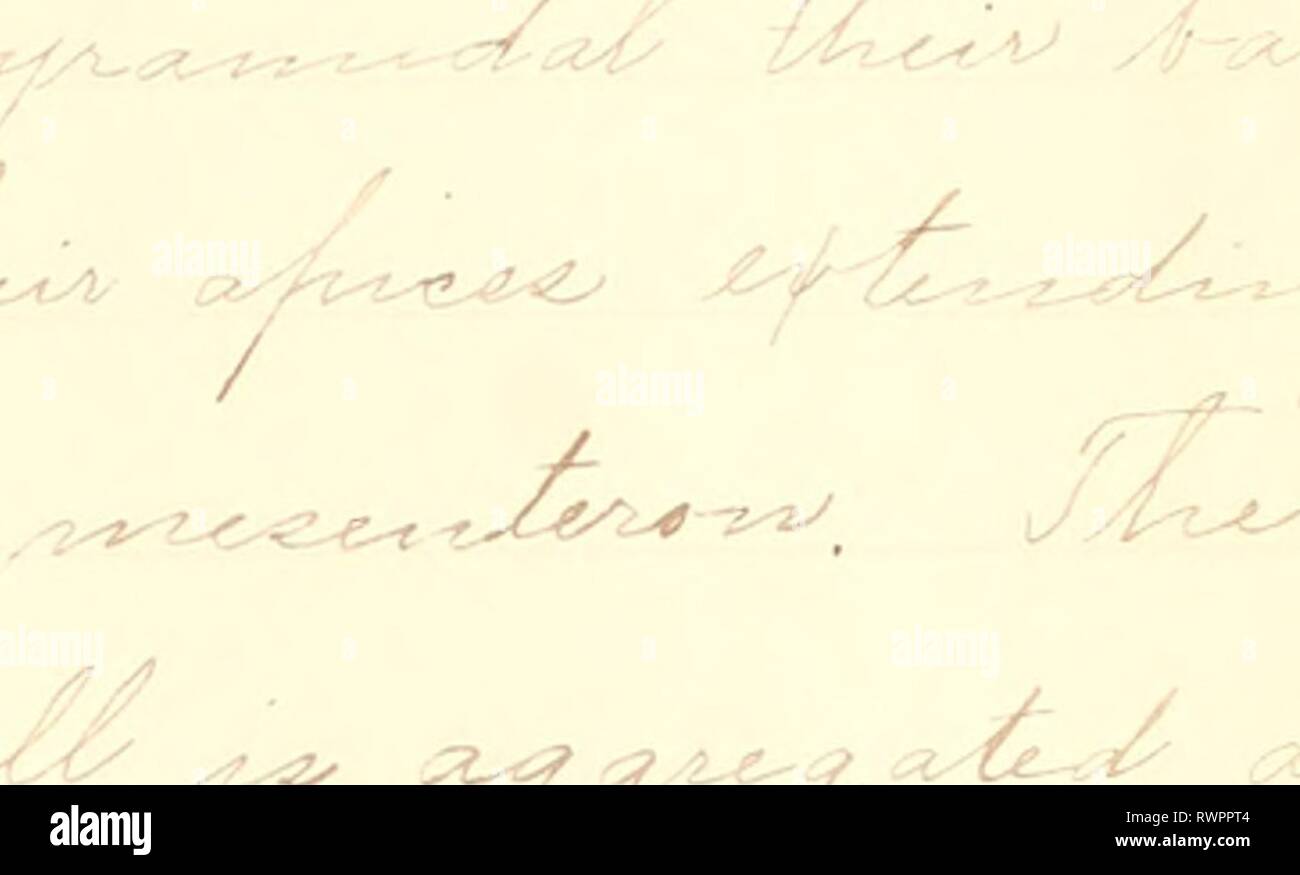 yramidal their ba
ir apices extendin
mesenteron. The
ll is aggregated a
alamy
Image ID: RWPPT4
www.alamy.com